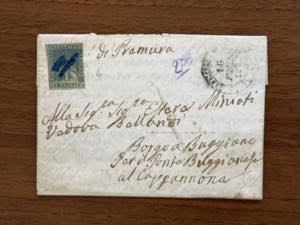 di Premura
16
Alla Sig.ra Sig.ra Ester Miniati
Vedova Ballandi
Borgo a Buggiano
Per il Ponte Buggianese
al Cappannona